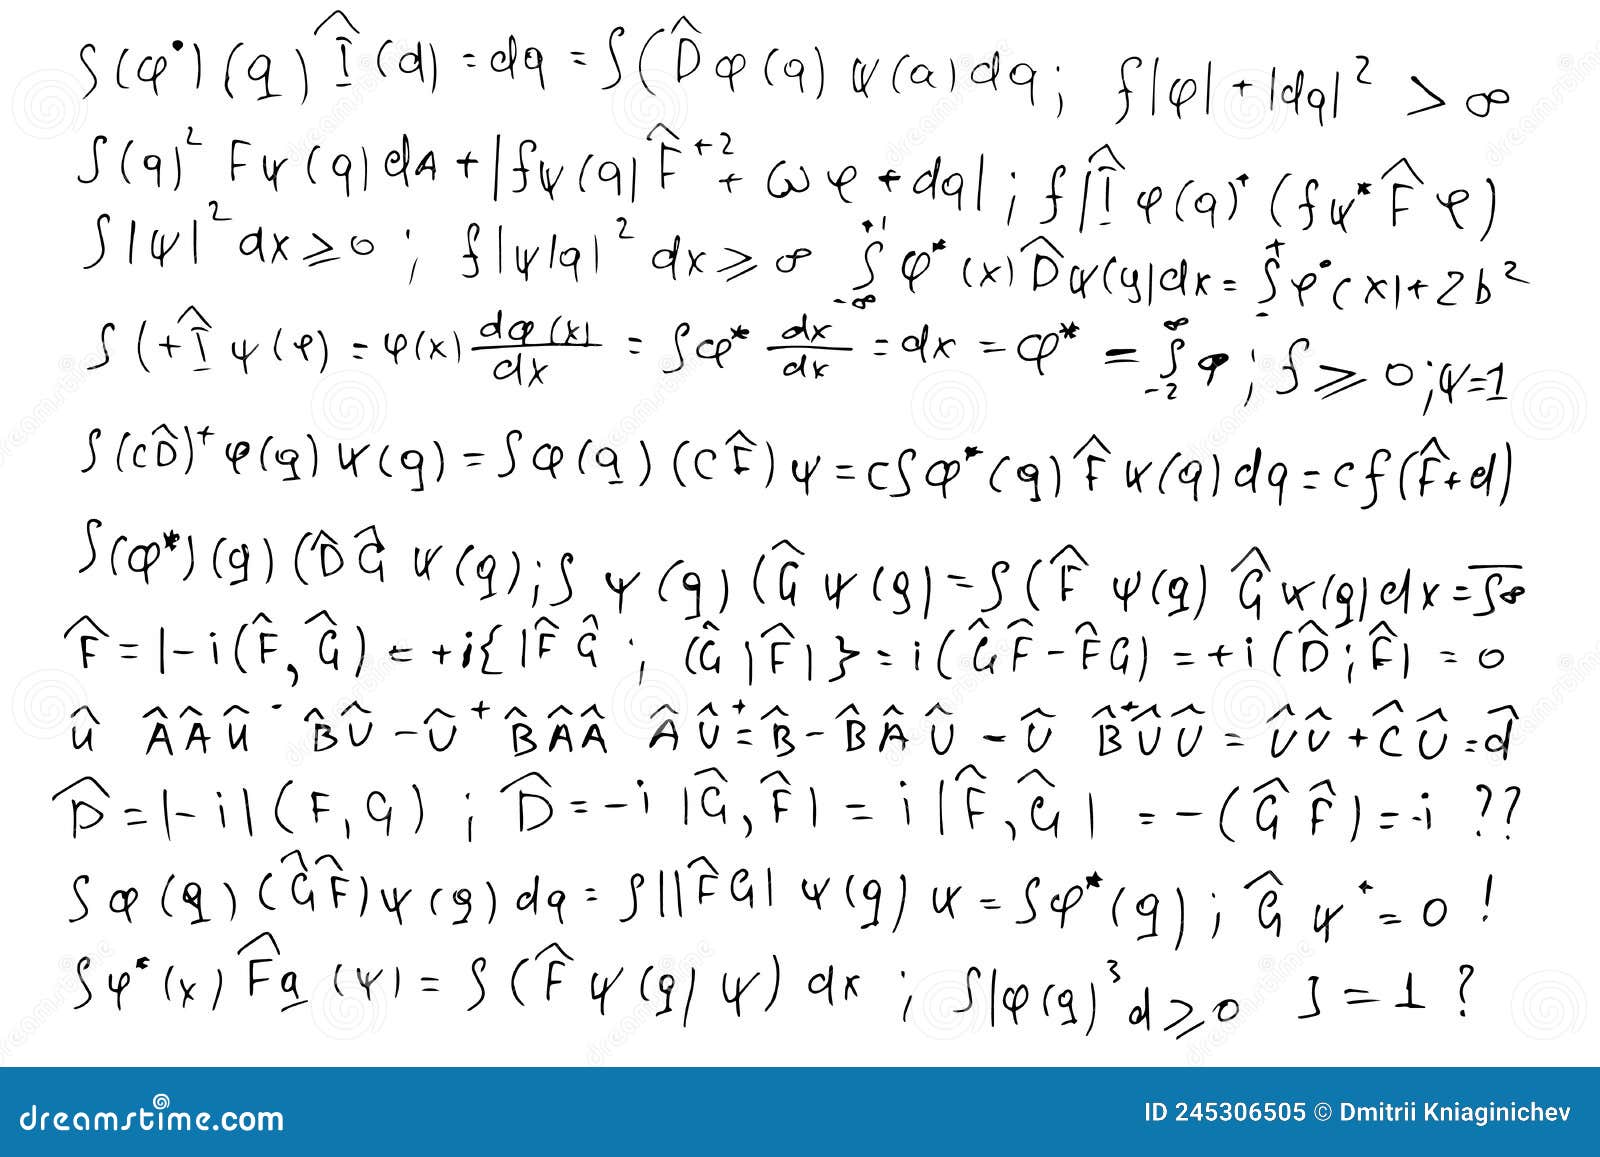 ∫(φ•)(q) Î (d) = dq = ∫(D̂ φ(q) ψ(a)dq; f|φ| + |dq|² > ∞
∫(q)² Fψ(q)dA + |fψ(q| F̂⁺²₊ ωφ + dq|; f|Î φ(q)⁺ (fψ* F̂ φ)
∫|ψ|² dx ≥ 0; f|ψ|q|² dx ≥ ∞ ∫₋∞⁺¹ φ*(x) D̂ψ(y|dx = ∫₋⁺ φ•(x|+2b²
∫(+Î ψ(φ) = φ(x) dφ(x|/dx = ∫φ* dx/dx = dx = φ* = ∫₋₂∞ φ; ∫ ≥ 0; ψ=1
∫(cD̂)⁺ φ(g) ψ(g) = ∫φ(q)(cF̂)ψ = c∫φ*(g) F̂ ψ(q) dq = cf(F̂+d)
∫(φ*)(g)(D̂Ĝ ψ(g); ∫ ψ(g)(Ĝ ψ(g| = ∫(F̂ ψ(g) Ĝ ψ(g)dx = ∫∞
F̂ = |-i(F̂, Ĝ) = +i{|F̂ Ĝ; (Ĝ|F̂|} = i(ĜF̂ - F̂G) = +i(D̂; F̂| = 0
û ÂÂû - B̂Û - Û⁺ B̂ÂÂ ÂÛ⁺= B̂ - B̂ÂÛ - Û B̂⁺ÛÛ = ÛÛ + ĈÛ = d̂
D̂ = |-i|(F, G); D̂ = -i |Ĝ, F̂| = i|F̂, Ĝ| = -(Ĝ F̂) = -i ??
∫φ(q)(ĜF̂)ψ(g)dq = ∫||F̂G| ψ(g) ψ = ∫φ*(g); Ĝ ψ⁺ = 0 !
∫φ*(x) F̂q (ψ) = ∫(F̂ ψ(g) ψ) dx; ∫|φ(g)³d ≥ 0 J = 1 ?
dreamstime.com
ID 245306505 © Dmitrii Kniaginichev